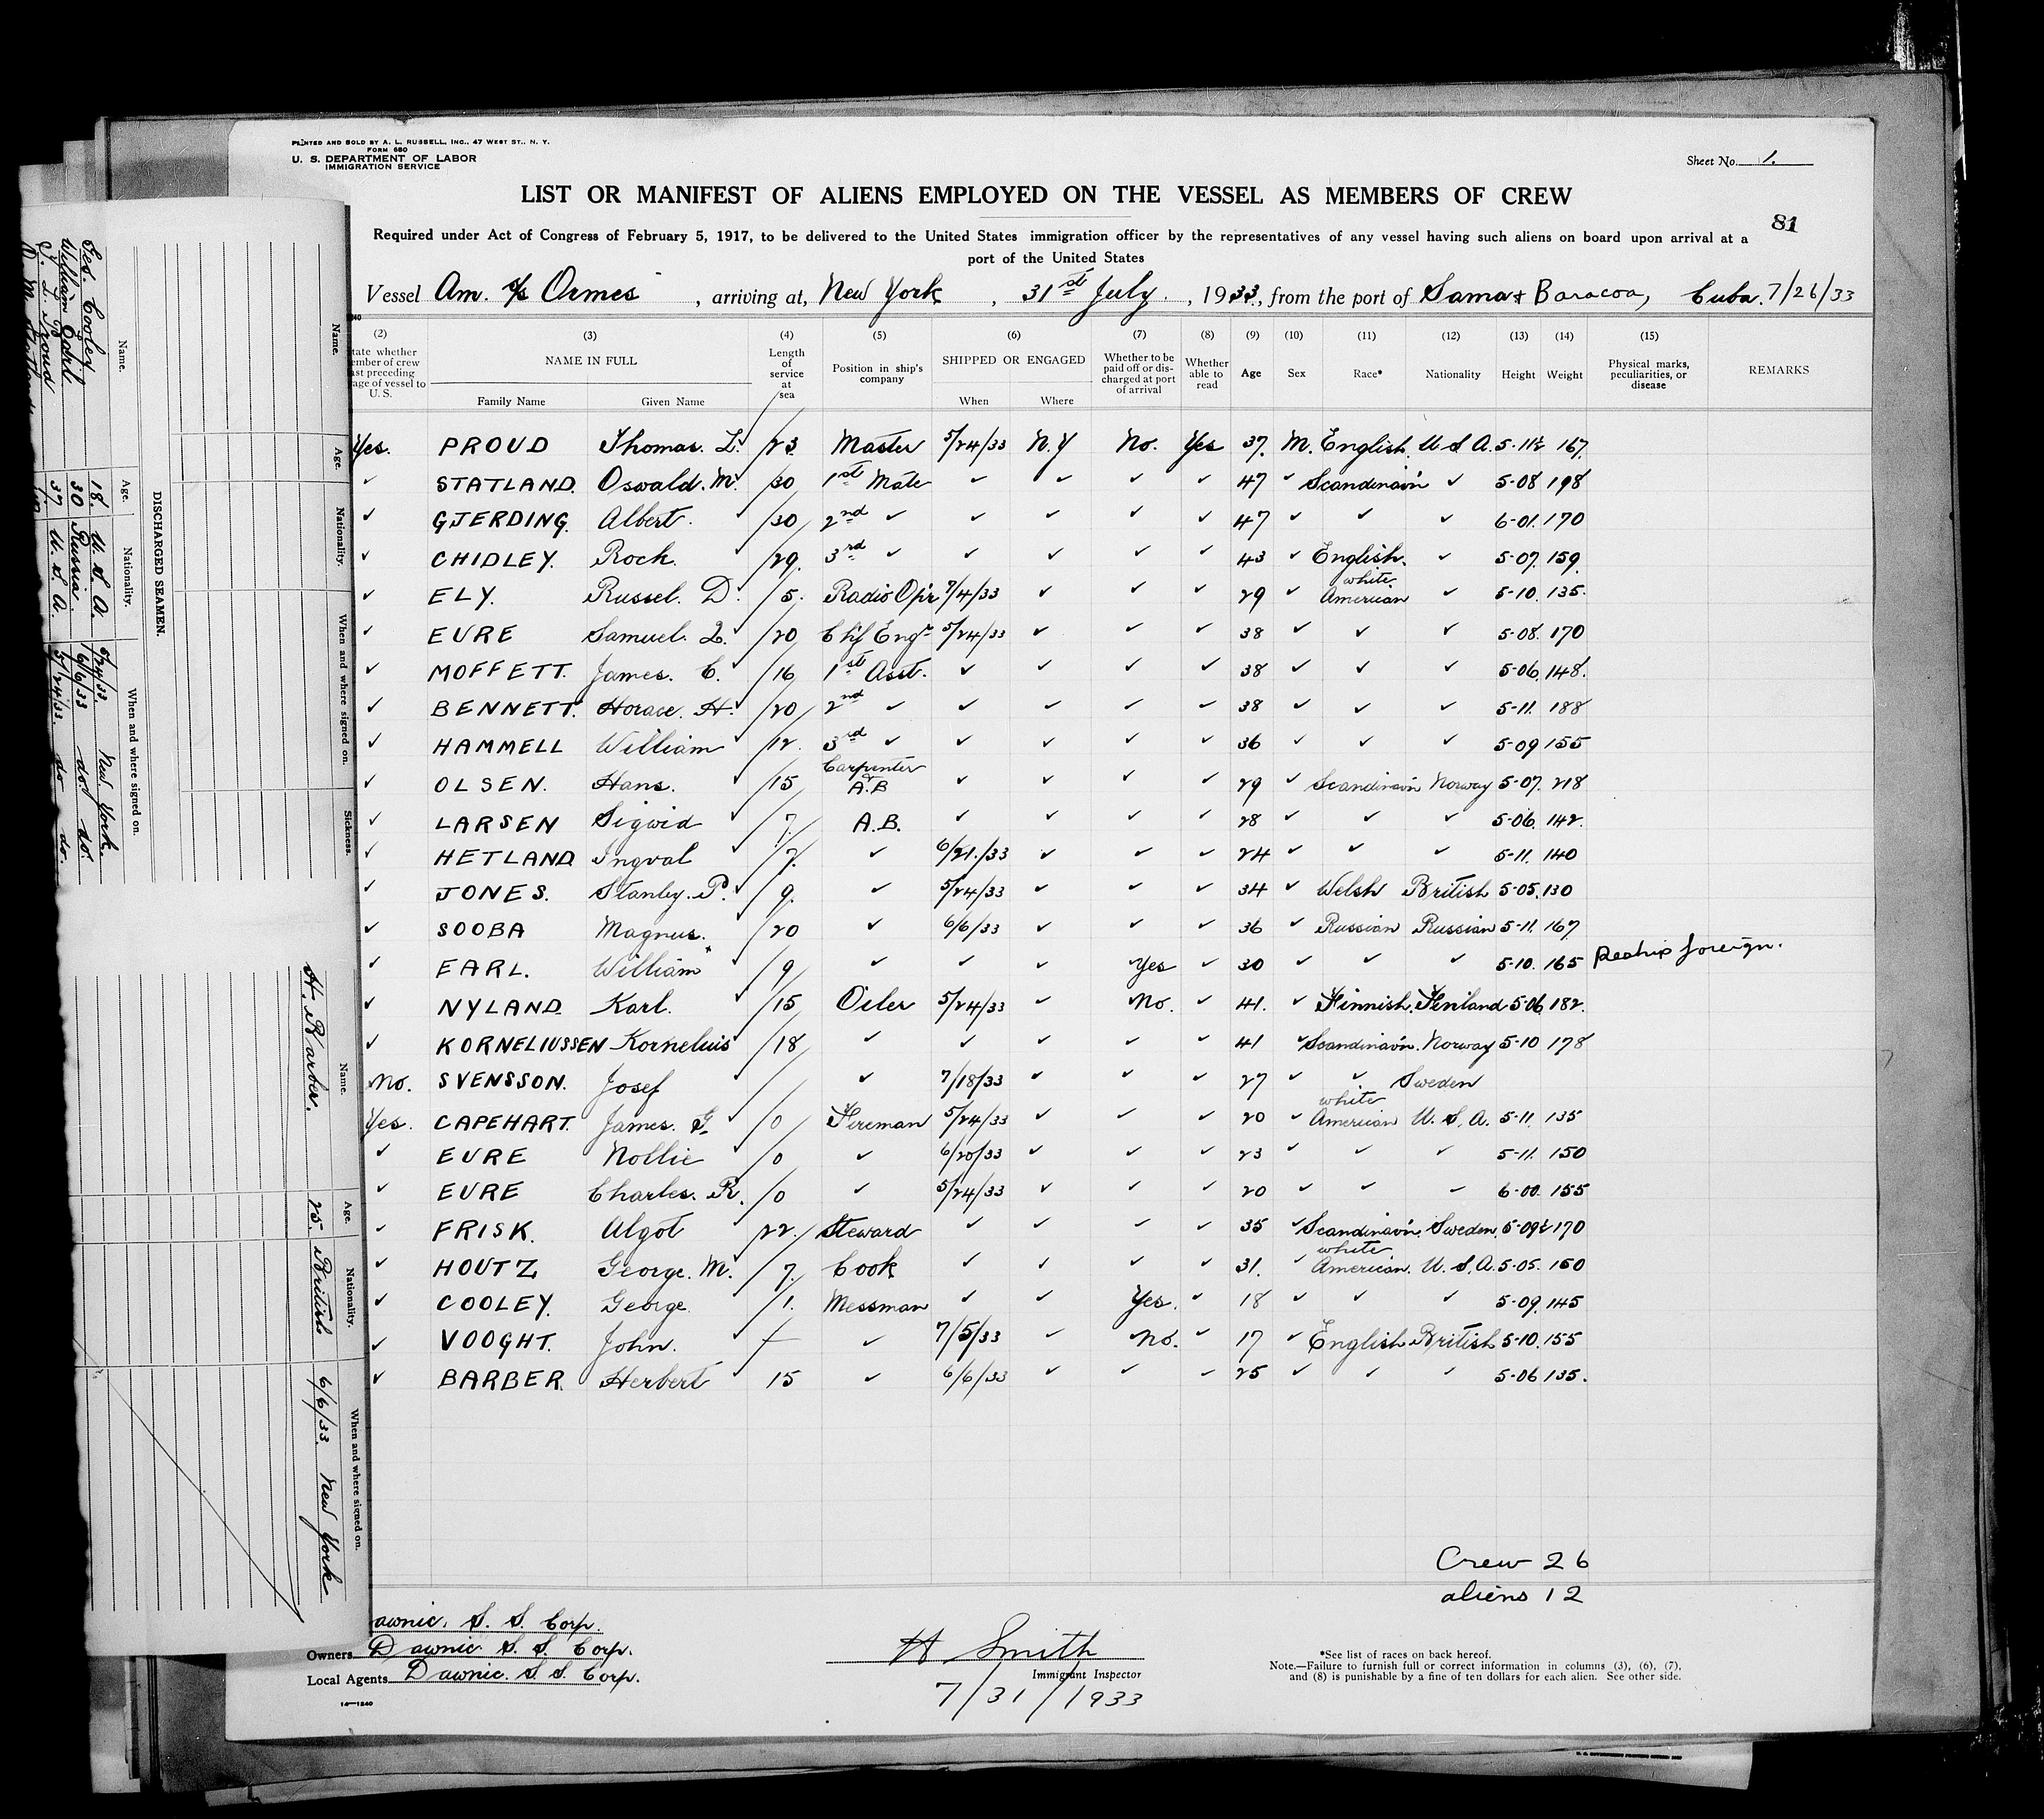 PRINTED AND SOLD BY A. L. RUSSELL, INC., 47 WEST ST., N. Y.
FORM 680
U. S. DEPARTMENT OF LABOR
IMMIGRATION SERVICE
Sheet No. 1.
LIST OR MANIFEST OF ALIENS EMPLOYED ON THE VESSEL AS MEMBERS OF CREW
81
Required under Act of Congress of February 5, 1917, to be delivered to the United States immigration officer by the representatives of any vessel having such aliens on board upon arrival at a
port of the United States
Vessel Am. s/s Ormes, arriving at, New York, 31st July, 1933, from the port of Sama & Baracoa, Cuba. 7/26/33
(2) (3) (4) (5) (6) (7) (8) (9) (10) (11) (12) (13) (14) (15)
tate whether
mber of crew
ast preceding
age of vessel to
U. S.
NAME IN FULL
Family Name Given Name
Length of service at sea
Position in ship's company
SHIPPED OR ENGAGED
When Where
Whether to be paid off or discharged at port of arrival
Whether able to read
Age Sex Race* Nationality Height Weight
Physical marks, peculiarities, or disease
REMARKS
Yes. PROUD Thomas. L. 23 Master 5/24/33 N.Y No. Yes 37. M. English. U S A. 5-11½ 167.
✓ STATLAND. Oswald. M. ✓ 30 1st Mate ✓ ✓ ✓ ✓ 47 ✓ Scandinav'n ✓ 5-08 198
✓ GJERDING. Albert. ✓ 30 2nd ✓ ✓ ✓ ✓ ✓ 47 ✓ ✓ ✓ 6-01. 170
✓ CHIDLEY. Rock. ✓ 29. 3rd ✓ ✓ ✓ ✓ ✓ 43 ✓ English. ✓ 5-07. 159.
✓ ELY. Russel. D. ✓ 5. Radio Opr 7/4/33 ✓ ✓ ✓ 29 ✓ white American ✓ 5-10. 135.
✓ EURE Samuel. L. ✓ 20 Chf Engr 5/24/33 ✓ ✓ ✓ 38 ✓ ✓ ✓ 5-08. 170
✓ MOFFETT. James. C. ✓ 16 1st Asst. ✓ ✓ ✓ ✓ 38 ✓ ✓ ✓ 5-06. 148.
✓ BENNETT. Horace. H. ✓ 20 2nd ✓ ✓ ✓ ✓ ✓ 38 ✓ ✓ ✓ 5-11. 188
✓ HAMMELL William ✓ 12. 3rd ✓ ✓ ✓ ✓ ✓ 36 ✓ ✓ ✓ 5-09 155
✓ OLSEN. Hans. ✓ 15 Carpenter & A.B ✓ ✓ ✓ ✓ 29 ✓ Scandinav'n Norway 5-07. 218
✓ LARSEN Sigvid ✓ 7. A.B. ✓ ✓ ✓ ✓ 28 ✓ ✓ ✓ 5-06. 142.
✓ HETLAND Ingval ✓ 7. ✓ 6/21./33 ✓ ✓ ✓ 24 ✓ ✓ ✓ 5-11. 140
✓ JONES. Stanley. P. ✓ 9. ✓ 5/24/33 ✓ ✓ ✓ 34 ✓ Welsh British 5-05. 130
✓ SOOBA Magnus. ✓ 20 ✓ 6/6/33 ✓ ✓ ✓ 36 ✓ Russian Russian 5-11. 167
✓ EARL. William ✓ 9 ✓ ✓ ✓ Yes ✓ 30 ✓ ✓ ✓ 5-10. 165 Reship foreign.
✓ NYLAND Karl. ✓ 15 Oiler 5/24/33 ✓ No. ✓ 41. ✓ Finnish. Finland 5-06 182.
✓ KORNELIUSSEN Kornelius ✓ 18 ✓ ✓ ✓ ✓ ✓ 41 ✓ Scandinav'n. Norway 5-10 178
No. SVENSSON. Josef ✓ ✓ 7/18/33 ✓ ✓ ✓ 27 ✓ ✓ Sweden
Yes. CAPEHART. James. G. ✓ 0 Fireman 5/24/33 ✓ ✓ 20 ✓ white American U. S. A. 5-11. 135
✓ EURE Nollie ✓ 0 ✓ 6/20/33 ✓ ✓ ✓ 23 ✓ ✓ ✓ 5-11. 150
✓ EURE Charles. R. 0 ✓ 5/24/33 ✓ ✓ ✓ 20 ✓ ✓ ✓ 6-00. 155
✓ FRISK. Algot ✓ 22. Steward ✓ ✓ ✓ ✓ 35 ✓ Scandinav'n. Sweden. 5-09½ 170
✓ HOUTZ George. M. 7. Cook ✓ ✓ ✓ ✓ 31. ✓ white American. U. S. A. 5-05. 160
✓ COOLEY. George. ✓ 1. Messman ✓ ✓ Yes. ✓ 18 ✓ ✓ ✓ 5-09. 145
✓ VOOGHT. John. ✓ — ✓ 7/5/33 ✓ No. ✓ 17 ✓ English British 5-10. 155
✓ BARBER. Herbert ✓ 15 ✓ 6/6/33 ✓ ✓ ✓ 25 ✓ ✓ ✓ 5-06 135.
Crew 26
aliens 12
awnic. S. S. Corp.
Owners Dawnic S. S. Corp.
Local Agents Dawnic. S. S. Corp.
14—1240
H Smith
Immigrant Inspector
7/31/1933
*See list of races on back hereof.
Note.—Failure to furnish full or correct information in columns (3), (6), (7),
and (8) is punishable by a fine of ten dollars for each alien. See other side.
DISCHARGED SEAMEN.
Name. Age. Nationality. When and where signed on.
Geo. Cooley 18. U. S. A. 5/24/33. New York.
William Earl. 30 Russia. 6/6/33 do. do.
T. L. Proud 37 U. S. A. 5/24/33. do do.
Name. Age. Nationality. When and where signed on. Sickness.
Name. Age. Nationality. When and where signed on.
H. Barber. 25. British 6/6/33. New York